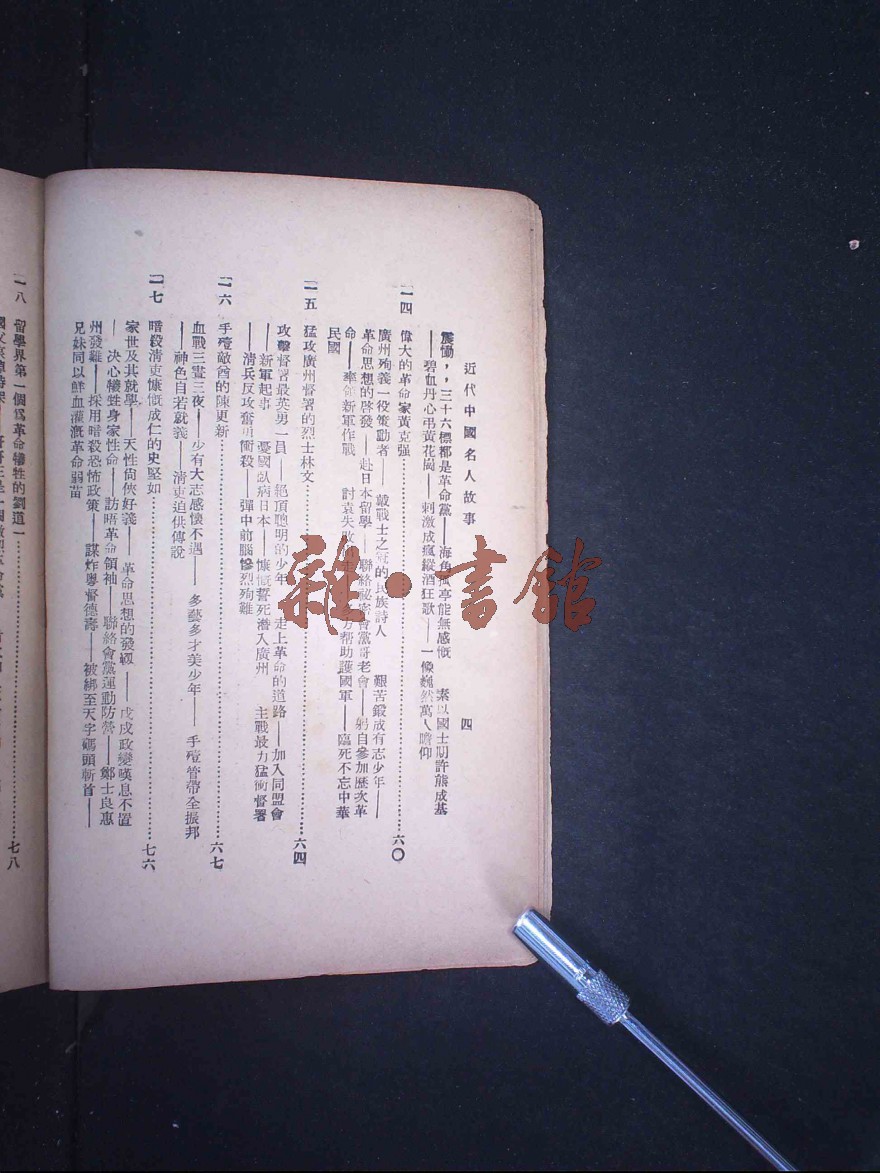 近代中國名人故事 四
震慟，，三十六標都是革命黨——海角 亭能無感慨 素以國士期許熊成基
——碧血丹心弔黃花崗——刺激成瘋縱酒狂歌——一像巍然萬人瞻仰
一四 偉大的革命家黃克强……六〇
廣州殉義一役策動者——戴戰士之 的民族詩人 艱苦鍛成有志少年——
革命思想的啓發——赴日本留學——聯絡祕密會黨哥老會——躬自參加歷次革
命——率領新軍作戰 討袁失敗 方帮助護國軍——臨死不忘中華
民國
一五 猛攻廣州督署的烈士林文……六四
攻擊督署最英勇一員——絕頂聰明的少年 走上革命的道路——加入同盟會
——新軍起事 憂國臥病日本——慷慨誓死潛入廣州 主戰最力猛衝督署
——清兵反攻奮勇衝殺——彈中前腦慘烈殉難
一六 手殪敵酋的陳更新……六七
血戰三晝三夜——少有大志感懷不遇—— 多藝多才美少年—— 手殪管帶全振邦
——神色自若就義——清吏迫供傳說
一七 暗殺清吏慷慨成仁的史堅如……七六
家世及其就學——天性尙俠好義——革命思想的發軔——戊戌政變嘆息不置
——決心犧牲身家性命——訪晤革命領袖——聯絡會黨運動防營——鄭士良惠
州發難——採用暗殺恐怖政策——謀炸粵督德壽——被綁至天字碼頭斬首——
兄妹同以鮮血灌漑革命弱苗
一八 留學界第一個爲革命犧牲的劉道一……七八
雜·書館